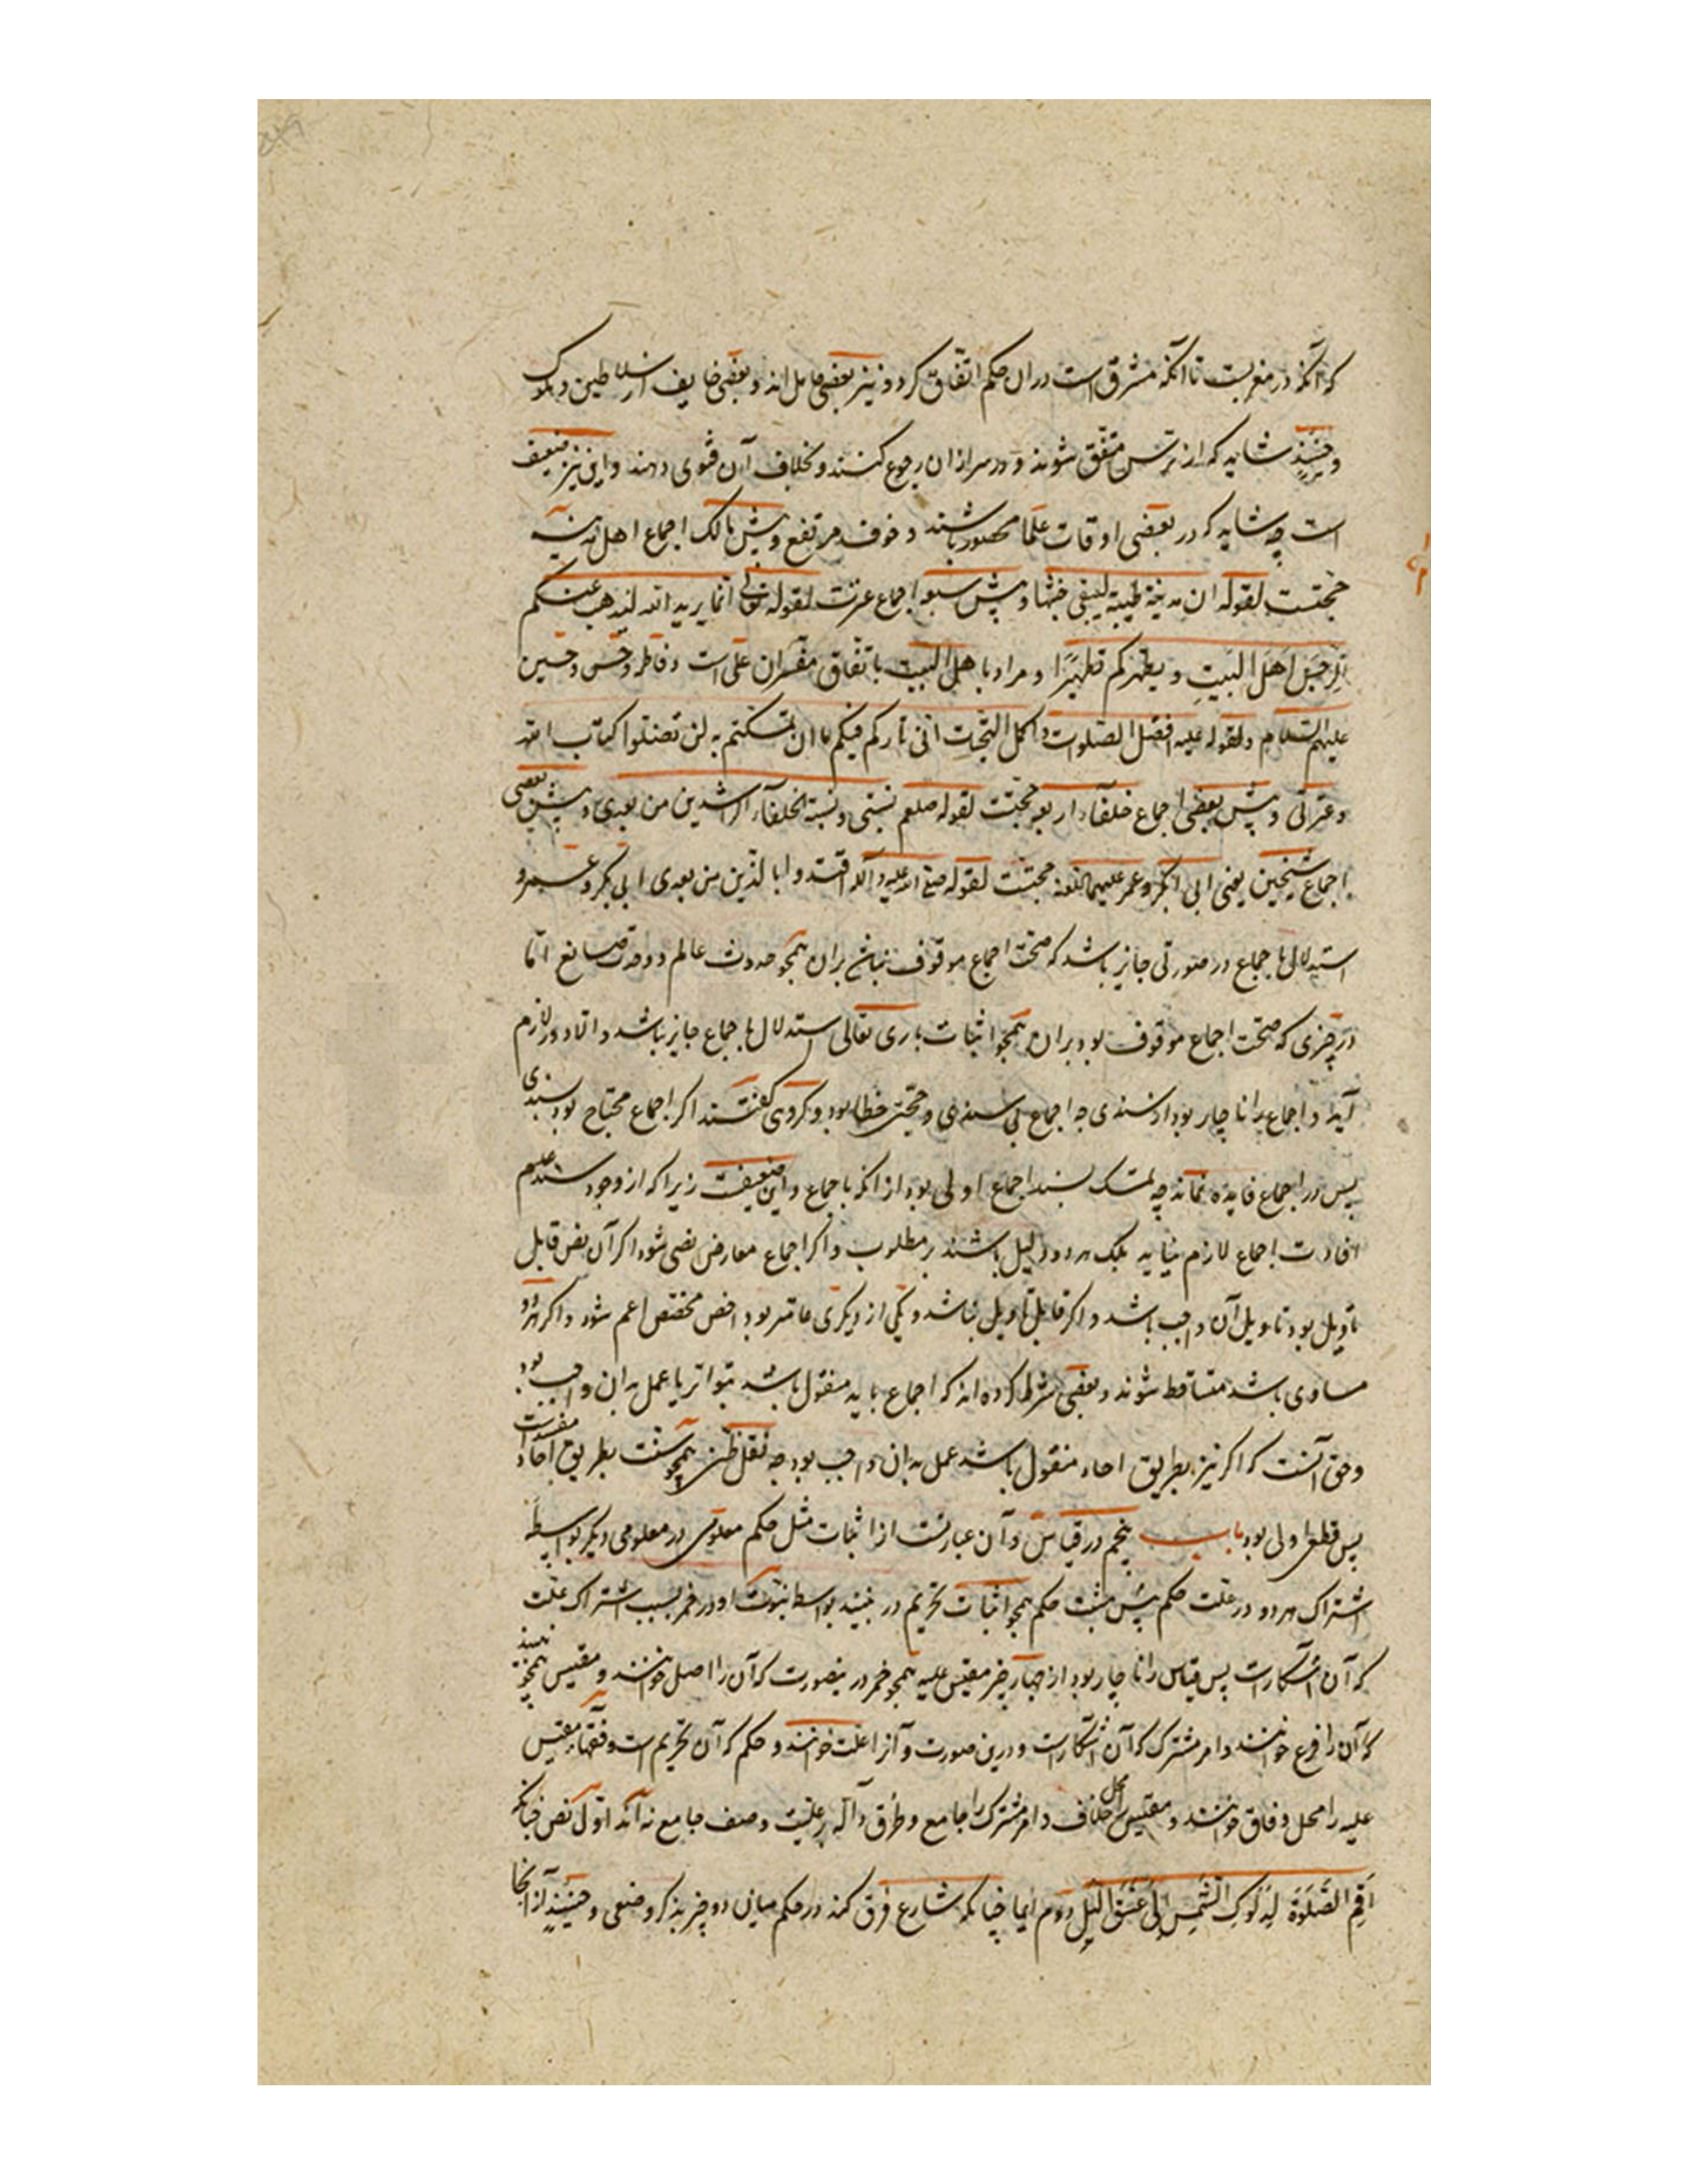 که آنکه در مغربست تا آنکه مشرق است در آن حکم اتفاق کرد و نیز بعضی خامل اند و بعضی خایف از سلاطین و ملوک
و حینئذ شاید که از ترس متفق شوند و در سر از ان رجوع کنند و بخلاف آن فتوی دهند و این نیز ضعیف
است چه شاید که در بعضی اوقات علما محصور باشند و خوف مرتفع و پیش مالک اجماع اهل مدینه
حجتست لقوله ان مدینة طیبة لینفی خبثها و پیش شیعه اجماع عترت لقوله تعالی انما یرید الله لیذهب عنکم
الرجس اهل البیت و یطهرکم تطهیرا و مراد با هل البیت باتفاق مفسران علی است و فاطمه و حسن و حسین
علیهم السلام و لقوله علیه افضل الصلوات و اکمل التحیات انی تارکم فیکم ما ان تمسکتم به لن تضلوا کتاب الله
و عترتی و پیش بعضی اجماع خلفاء اربعه حجتست لقوله صلعم بسنتی و سنة الخلفاء الراشدین من بعدی و پیش بعضی
اجماع شیخین یعنی ابی بکر و عمر علیهما حجتست لقوله صلی الله علیه و آله اقتدوا بالذین من بعدی ابی بکر و عمر و
استدلال با جماع در صورتی جایز باشد که صحت اجماع موقوف نباشد بران همچو حدوث عالم و وحدت صانع اما
در چیزی که صحت اجماع موقوف بود بران همچو اثبات باری تعالی استدلال با جماع جایز نباشد و الا دور لازم
آید و اجماع را ناچار بود از سندی چه اجماع بی سندی و حجتی خطا بود و گروهی گفتند اگر اجماع محتاج بود بسندی
پس در اجماع فایده نماند چه تمسک بسند اجماع اولی بود از انکه با جماع و این ضعیفست زیرا که از وجود سند عدم
افادت اجماع لازم نیاید بلک هر دو دلیل باشند بر مطلوب و اگر اجماع معارض نصی شود اگر آن نص قابل
تأویل بود تاویل آن واجب باشد و اگر قابل تاویل نباشد و یکی از دیگری عامتر بود اخص مخصص اعم شود و اگر هر دو
مساوی باشد متساقط شوند و بعضی شرط کرده اند که اجماع باید منقول باشد بتواتر یا عمل بدان واجب بود
و حق آنست که اگر نیز بطریق احاد منقول باشد عمل بدان واجب بود چه نقل ظنی همچو سنت بطریق احاد
پس قطعی اولی بود باب پنجم در قیاس و آن عبارتست از اثبات مثل حکم معلومی در معلومی دیگر بواسطه
اشتراک هر دو در علت حکم پیش مثبت حکم همچو اثبات تحریم در نبیذ بواسطه ثبوت او در خمر بسبب اشتراک علت
که آن اسکارست پس قیاس را ناچار بود از چهار چیز مقیس علیه همچو خمر درینصورت که آن را اصل خوانند و مقیس همچو نبیذ
که آن را فرع خوانند و امر مشترک که آن اسکارست و درین صورت و آنرا علت خوانند و حکم که آن تحریم است و فقهاء مقیس
علیه را محل وفاق خوانند و مقیس را محل خلاف و امر مشترک را جامع و طرق داله بر علیت وصف جامع نه آند اول نص چنانکه
اقم الصلوة لدلوک الشمس الی غسق اللیل دوم ایما چنانکه شارع فرق کند در حکم میان دو چیز بذکر وصفی و حینئذ از انجا